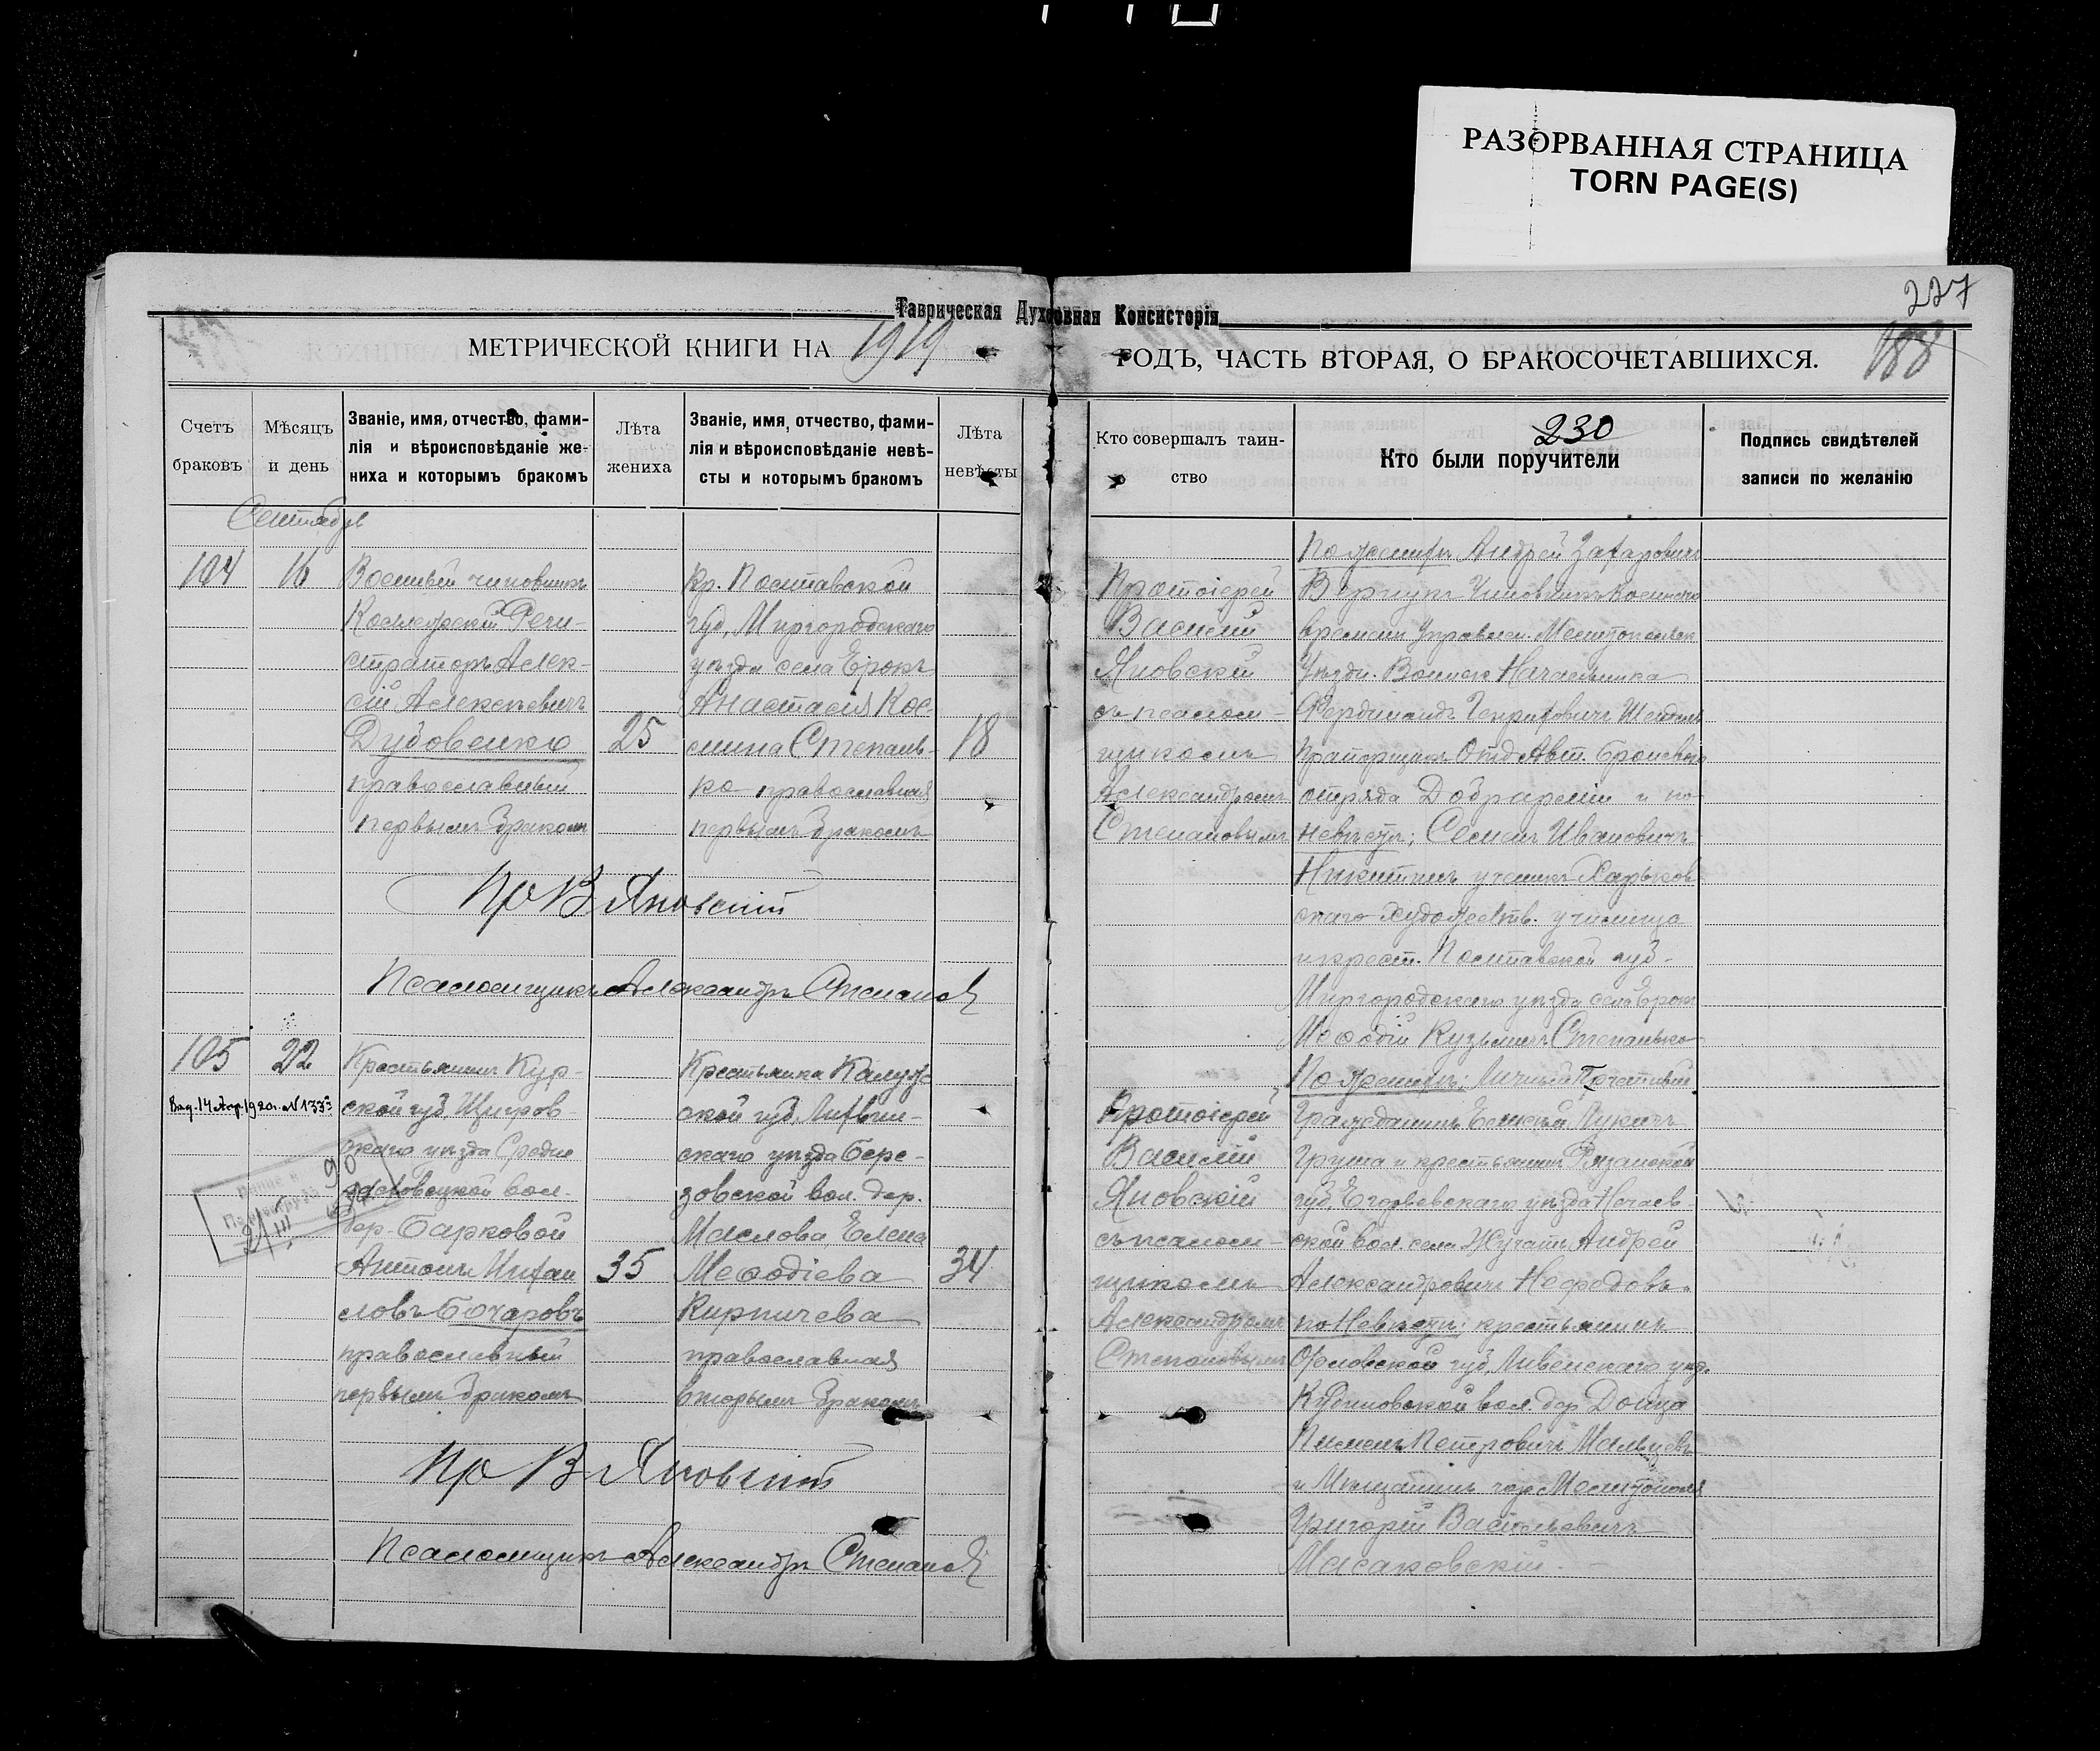 РАЗОРВАННАЯ СТРАНИЦА
TORN PAGE(S)
227
Таврическая Духовная Консисторія
МЕТРИЧЕСКОЙ КНИГИ НА 1919
ГОДЪ, ЧАСТЬ ВТОРАЯ, О БРАКОСОЧЕТАВШИХСЯ.
188
Счетъ
браковъ
Мѣсяцъ
и день
Званіе, имя, отчество, фами-
лія и вѣроисповѣданіе же-
ниха и которымъ бракомъ
Лѣта
жениха
Званіе, имя, отчество, фами-
лія и вѣроисповѣданіе невѣ-
сты и которымъ бракомъ
Лѣта
невѣсты
Кто совершалъ таин-
ство
230
Кто были поручители
Подпись свидѣтелей
записи по желанію
Сентябрь
104
16
Военный чиновникъ
Коллежскій Реги-
страторъ Алек-
сій Алексѣевичъ
Дубовенко
православный
первымъ бракомъ
25
Кр. Полтавской
губ, Миргородскаго
уѣзда села Ерокъ
Анастасія Кос-
мина Степань-
ко православная
первымъ бракомъ
18
Протоіерей
Василій
Яновскій
съ псалом-
щикомъ
Александромъ
Степановымъ
По женихѣ Андрей Захаровичъ
Вернуръ Чиновникъ Военнаго
времени Управлен. Мелитопольск
Уѣздн. Воинск Начальника
Фердинандъ Генриховичъ
Прапорщикъ Отд Авт. Броневого
отряда Добрарміи и по
невѣстѣ; Семенъ Ивановичъ
Никитинъ ученикъ Харьков
скаго Художеств. училища
и крест. Полтавской губ-
Миргородскаго уѣзда села Ерокъ
Меѳодій Кузьмичъ Степанько
Пр В Яновскій
Псаломщикъ Александръ Степановъ
105
22
Выд. 14 Апр. 1920 г. № 133
Крестьянинъ Кур-
ской губ, Щигров-
скаго уѣзда Средне
вол-
дер. Барковой
Антонъ Михаи
ловъ Бочаровъ
православный
первымъ бракомъ
35
Крестьянка Калуж
ской губ, Лихвин-
скаго уѣзда Бере-
зовской вол. дер.
Маслова Елена
Меѳодіева
Кирпичева
православная
вторымъ бракомъ
34
Протоіерей
Василій
Яновскій
съ псалом-
щикомъ
Александромъ
Степановымъ
По женихѣ: Личный Почетный
Гражданинъ Евсихій Лукичъ
Груша и крестьянинъ Рязанской
губ, Егорьевскаго уѣзда Нечаев-
ской вол. села Жучаты Андрей
Александровичъ Нефедовъ.
по Невѣстѣ: крестьянинъ
Орловской губ, Ливенскаго уѣз.
Кудиновской вол. дер Донца
Пименъ Петровичъ Мальцевъ
и Мѣщанинъ гор Мелитополя
Григорій Васильевичъ
Масаковскій.
Пр В Яновскій
Псаломщикъ Александръ Степановъ